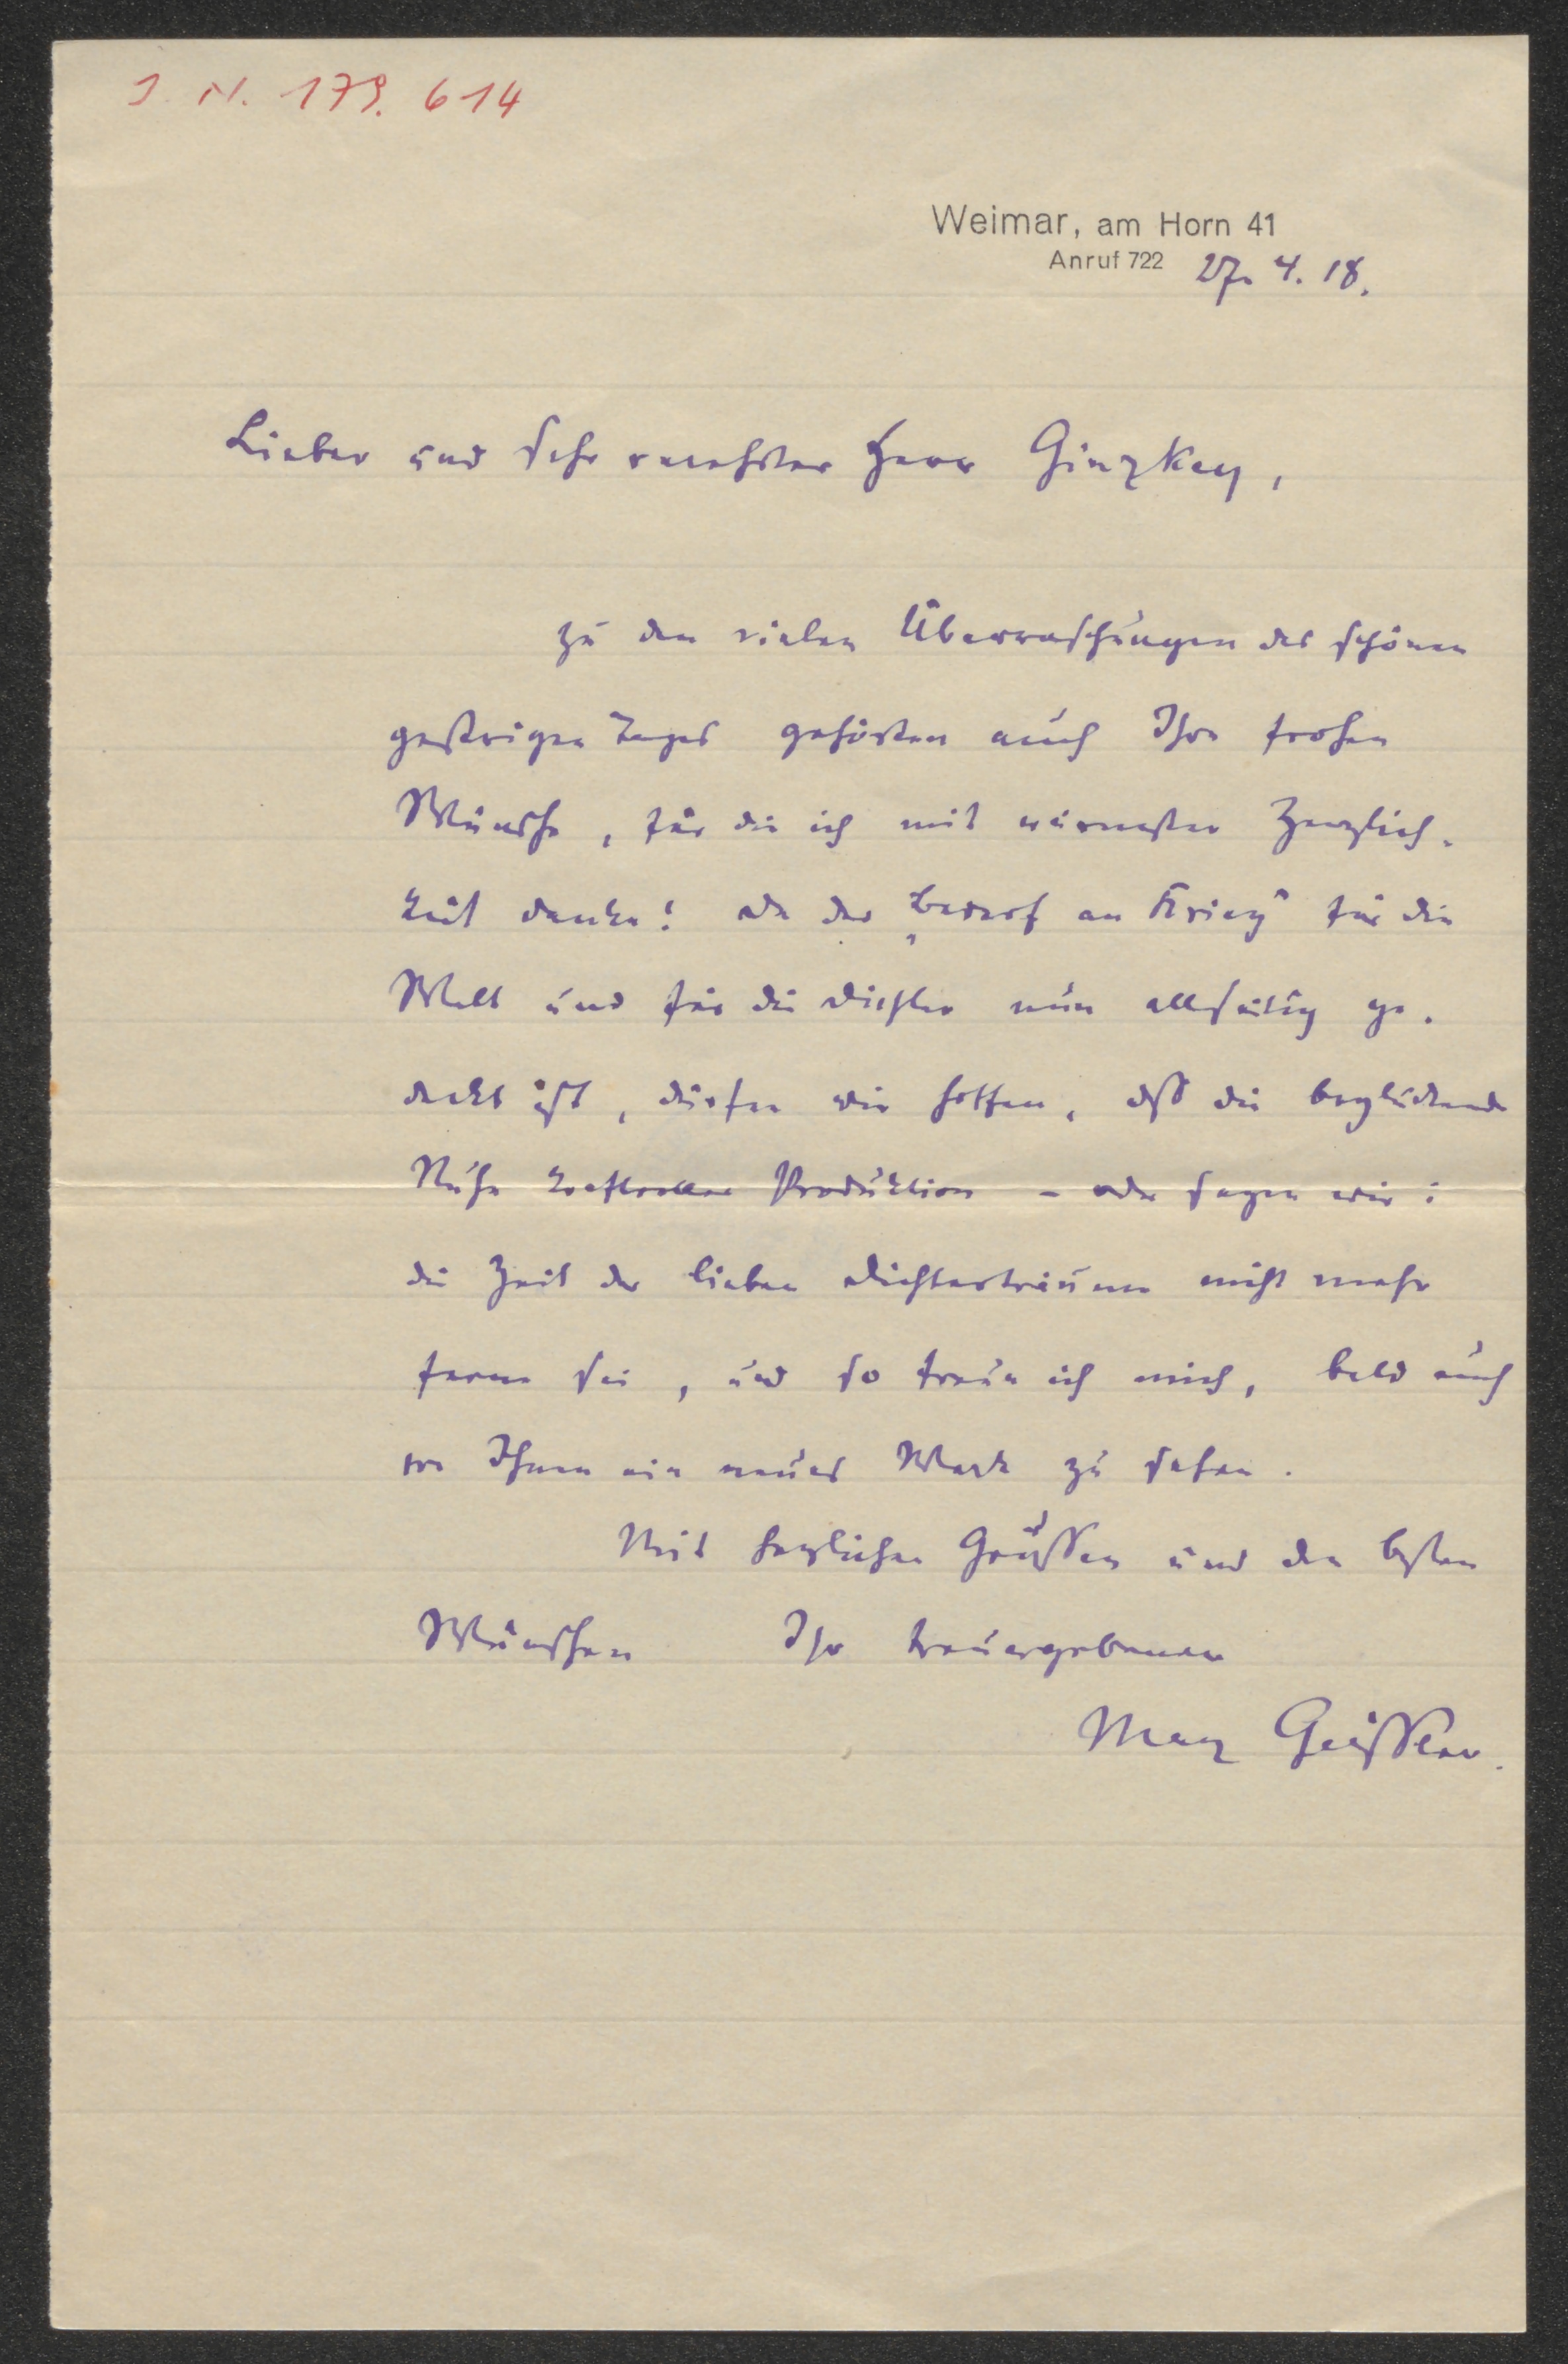 I. N. 179.614
Weimar, am Horn 41
Anruf 722 27. 4. 18.
Lieber und sehr verehrter Herr Ginzkey,
zu den vielen Überraschungen des schönen
gestrigen Tages gehörten auch Ihre frohen
Wünsche, für die ich mit wärmster Herzlich-
keit danke! Da der „Bedarf an Krieg" für die
Welt und für die Dichter nun allseitig ge-
deckt ist, dürfen wir hoffen, daß die beglückende
Ruhe kraftvoller Produktion – oder sagen wir:
die Zeit der lieben Dichterträume nicht mehr
ferne sei, und so freue ich mich, bald auch
von Ihnen ein neues Werk zu sehen.
Mit herzlichen Grüßen und den besten
Wünschen Ihr treuergebener
Max Geißler.